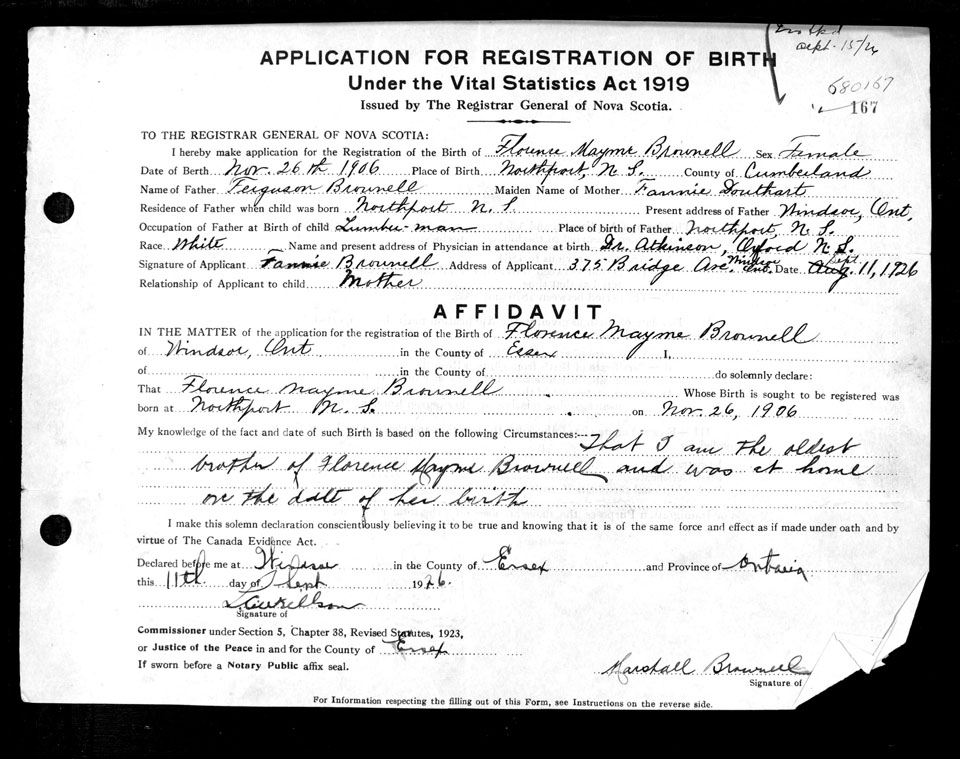 Sept. 15/26
APPLICATION FOR REGISTRATION OF BIRTH
Under the Vital Statistics Act 1919
680167
Issued by The Registrar General of Nova Scotia.
167
TO THE REGISTRAR GENERAL OF NOVA SCOTIA:
I hereby make application for the Registration of the Birth of Florence Mayme Brownell Sex Female
Date of Berth Nov. 26th 1906 Place of Birth Northport, N. S. County of Cumberland
Name of Father Ferguson Brownell Maiden Name of Mother Fannie Douthart
Residence of Father when child was born Northport N. S Present address of Father Windsor, Ont,
Occupation of Father at Birth of child Lumber-man Place of birth of Father Northport, N. S.
Race White Name and present address of Physician in attendance at birth Dr. Atkinson, Oxford N. S.
Signature of Applicant Fannie Brownell Address of Applicant 375 Bridge Ave. Windsor Ont. Date Aug. Sept. 11, 1926
Relationship of Applicant to child Mother
AFFIDAVIT
IN THE MATTER of the application for the registration of the Birth of Florence Mayme Brownell
of Windsor, Ont in the County of Essex I,
of in the County of do solemnly declare:
That Florence Mayme Brownell Whose Birth is sought to be registered was
born at Northport N. S. on Nov. 26, 1906
My knowledge of the fact and date of such Birth is based on the following Circumstances:— That I am the oldest
brother of Florence Mayme Brownell and was at home
on the date of her birth
I make this solemn declaration conscientiously believing it to be true and knowing that it is of the same force and effect as if made under oath and by
virtue of The Canada Evidence Act.
Declared before me at Windsor in the County of Essex and Province of Ontario
this 11th day of Sept 1926.
Signature of
Commissioner under Section 5, Chapter 38, Revised Statutes, 1923,
or Justice of the Peace in and for the County of Essex
If sworn before a Notary Public affix seal.
Marshall Brownell
Signature of
For Information respecting the filling out of this Form, see Instructions on the reverse side.